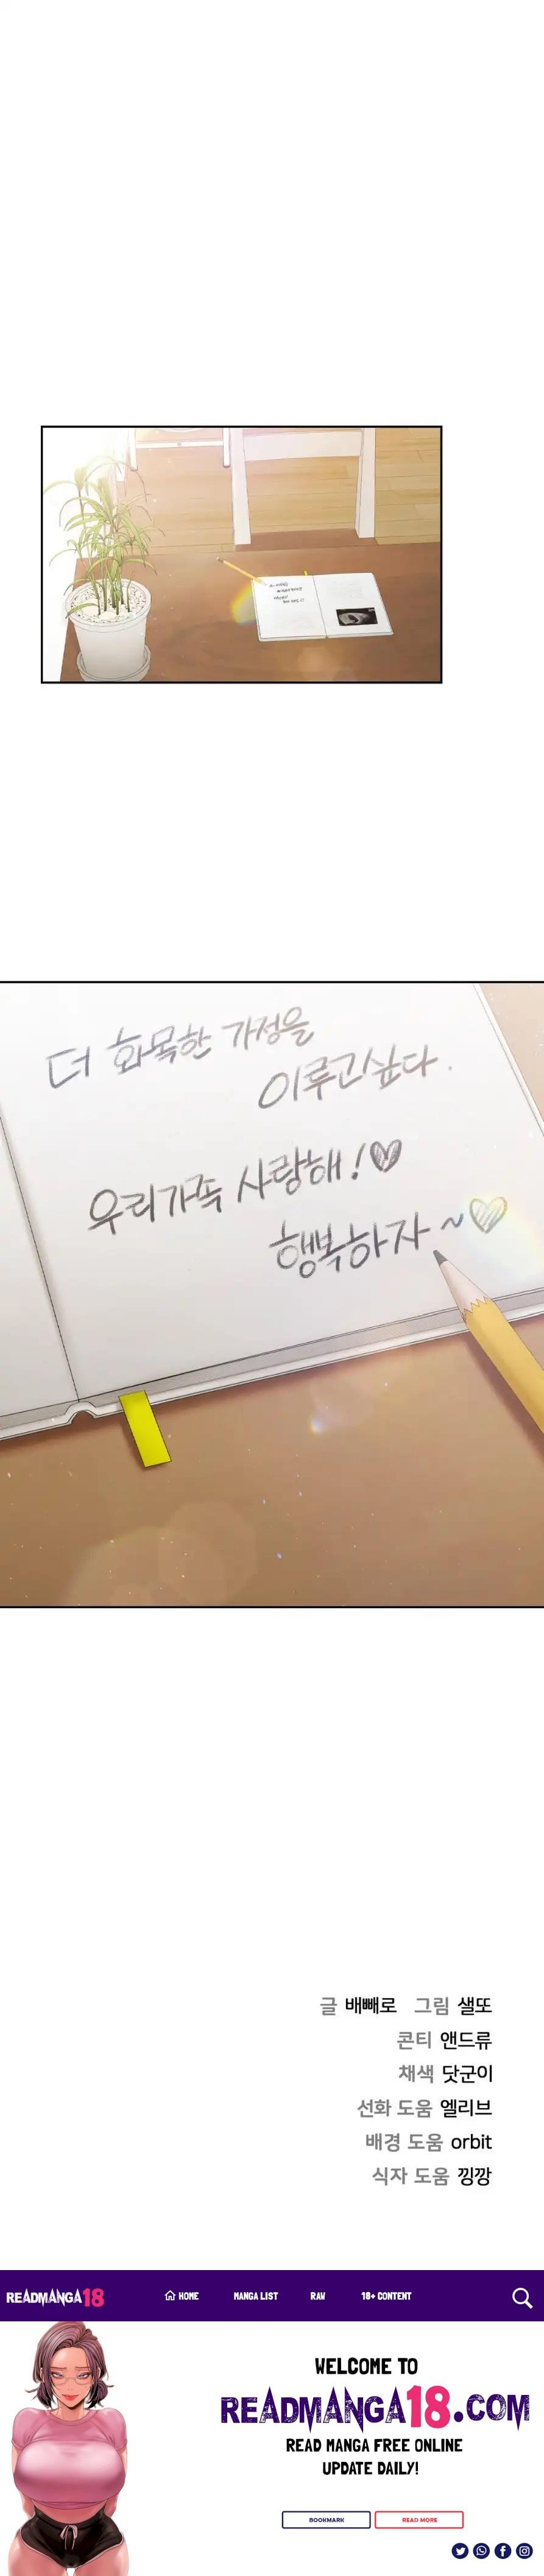 더 화목한 가정을
이루고싶다.
우리가족 사랑해!♡
행복하자~♡
글 배빼로 그림 샐또
콘티 앤드류
채색 닷군이
선화 도움 엘리브
배경 도움 orbit
식자 도움 낑깡
READMANGA18 HOME MANGA LIST RAW 18+ CONTENT
WELCOME TO
READMANGA18.COM
READ MANGA FREE ONLINE
UPDATE DAILY!
BOOKMARK READ MORE